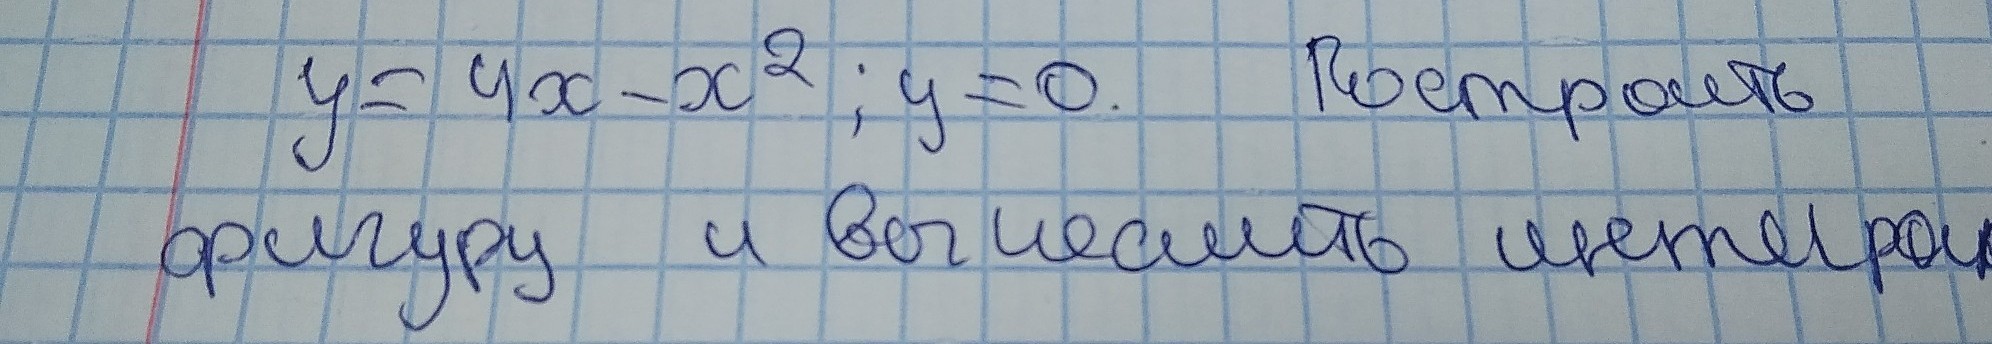 y = 4x - x²; y = 0. Построить
фигуру и вычислить